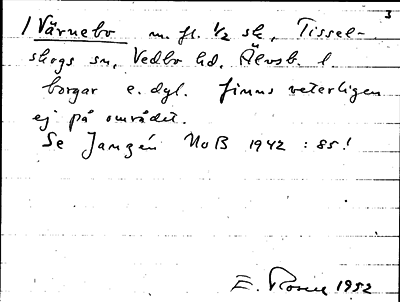 3
/Värnebo m. fl. 1/2 sk, Tissel-
skogs sn, Vedbo hd, Älvsb. l.
borgar e. dyl. finns veterligen
ej på området.
Se Janzén NoB 1942 : 85!
E. Rosell 1952